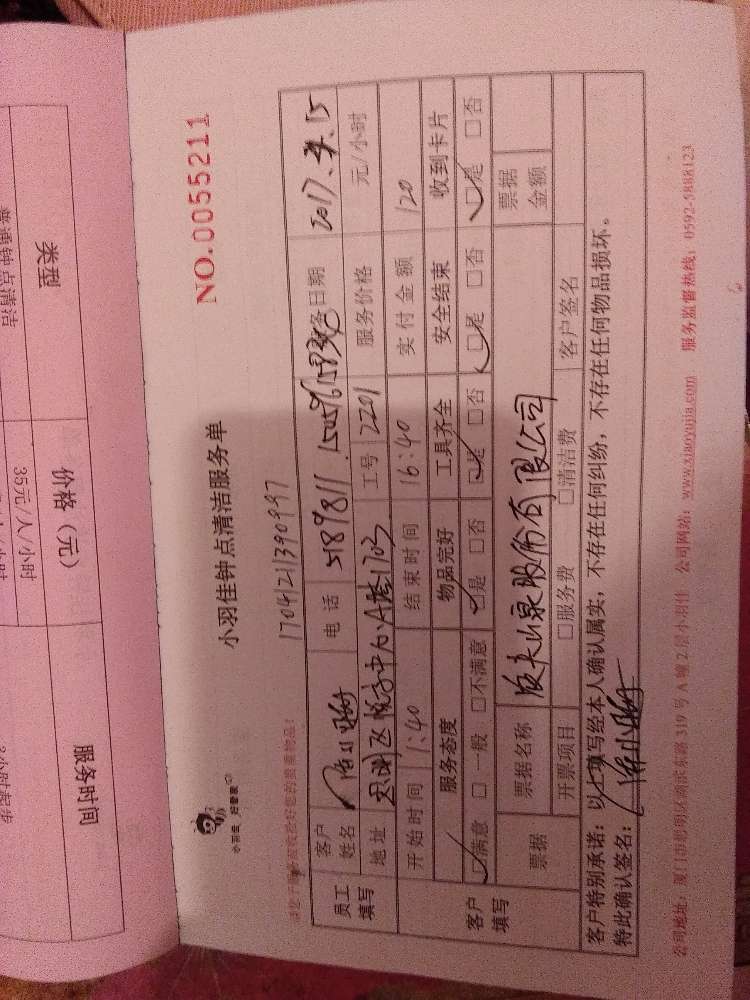 NO.0055211
小羽佳钟点清洁服务单
17041211390997
小羽佳 好管家
员工填写 客户姓名 电话 5189811 服务日期 2017.4.15
地址 思明区 悦享中心A塔1703 工号 2201 服务价格 元/小时
开始时间 1:40 结束时间 16:40 实付金额 120
客户填写 服务态度 物品完好 工具齐全 安全结束 收到卡片
☑满意 □一般 □不满意 ☑是 □否 ☑是 □否 ☑是 □否 ☑是 □否
票据 票据名称 农夫山泉股份有限公司 票据金额
开票项目 □服务费 □清洁费 客户签名
客户特别承诺：以上填写经本人确认属实，不存在任何纠纷，不存在任何物品损坏。
特此确认签名：
公司地址：厦门市思明区湖滨东路319号A幢2层小羽佳 公司网站：www.xiaoyujia.com 服务监督热线：0592-5888123
类型 价格（元） 服务时间
普通钟点清洁 35元/人/小时